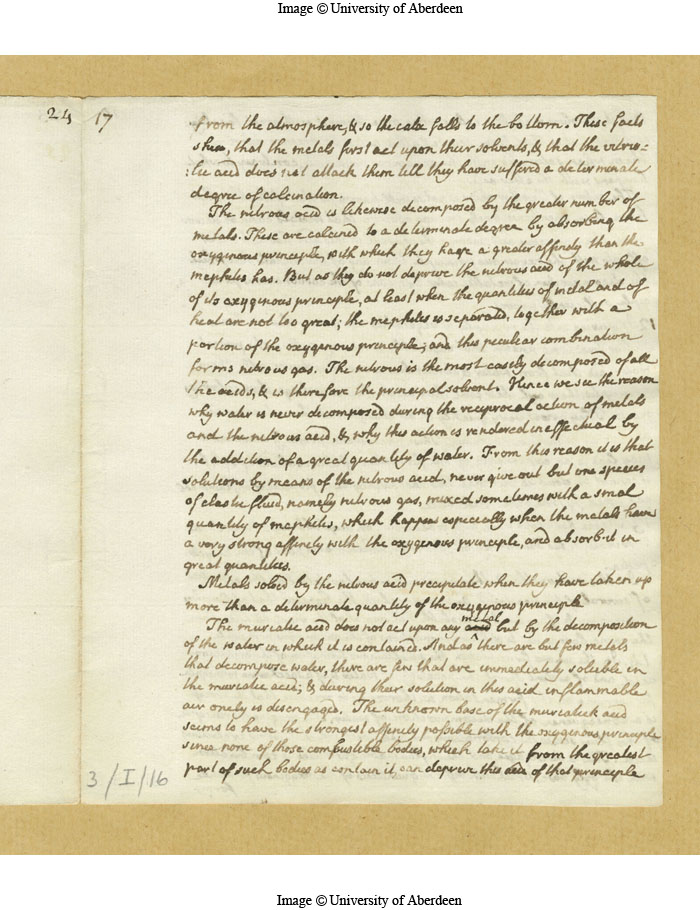 Image © University of Aberdeen
24 17
from the atmosphere, & so the calx falls to the bottom. These facts
shew, that the metals first act upon their solvents, & that the vitrio-
:lic acid does not attack them till they have suffered a determinate
degree of calcination.
The nitrous acid is likewise decomposed by the greater number of
metals. These are calcined to a determinate degree by absorbing the
oxygenous principle, with which they have a greater affinity than the
mephitis has. But as they do not deprive the nitrous acid of the whole
of its oxygenous principle, at least when the quantities of metal and of
heat are not too great; the mephitis is separated, together with a
portion of the oxygenous principle; and this peculiar combination
forms nitrous gas. The nitrous is the most easily decomposed of all
the acids, & is therefore the principal solvent. Hence we see the reason
why water is never decomposed during the reciprocal action of metals
and the nitrous acid, & why this action is rendered ineffectual by
the addition of a great quantity of water. From this reason it is that
solutions by means of the nitrous acid, never give out but one species
of elastic fluid, namely nitrous gas, mixed sometimes with a small
quantity of mephitis, which happens especially when the metals have
a very strong affinity with the oxygenous principle, and absorb it in
great quantities.
Metals solved by the nitrous acid precipitate when they have taken up
more than a determinate quantity of the oxygenous principle
The muriatic acid does not act upon any acid metal but by the decomposition
of the water in which it is contained. And as there are but few metals
that decompose water, there are few that are immediately soluble in
the muriatic acid; & during their solution in this acid inflammable
air onely is disengaged. The unknown base of the muriatick acid
seems to have the strongest affinity possible with the oxygenous principle
since none of those combustible bodies, which take it from the greatest
part of such bodies as contain it, can deprive this acid of that principle
3/I/16
Image © University of Aberdeen